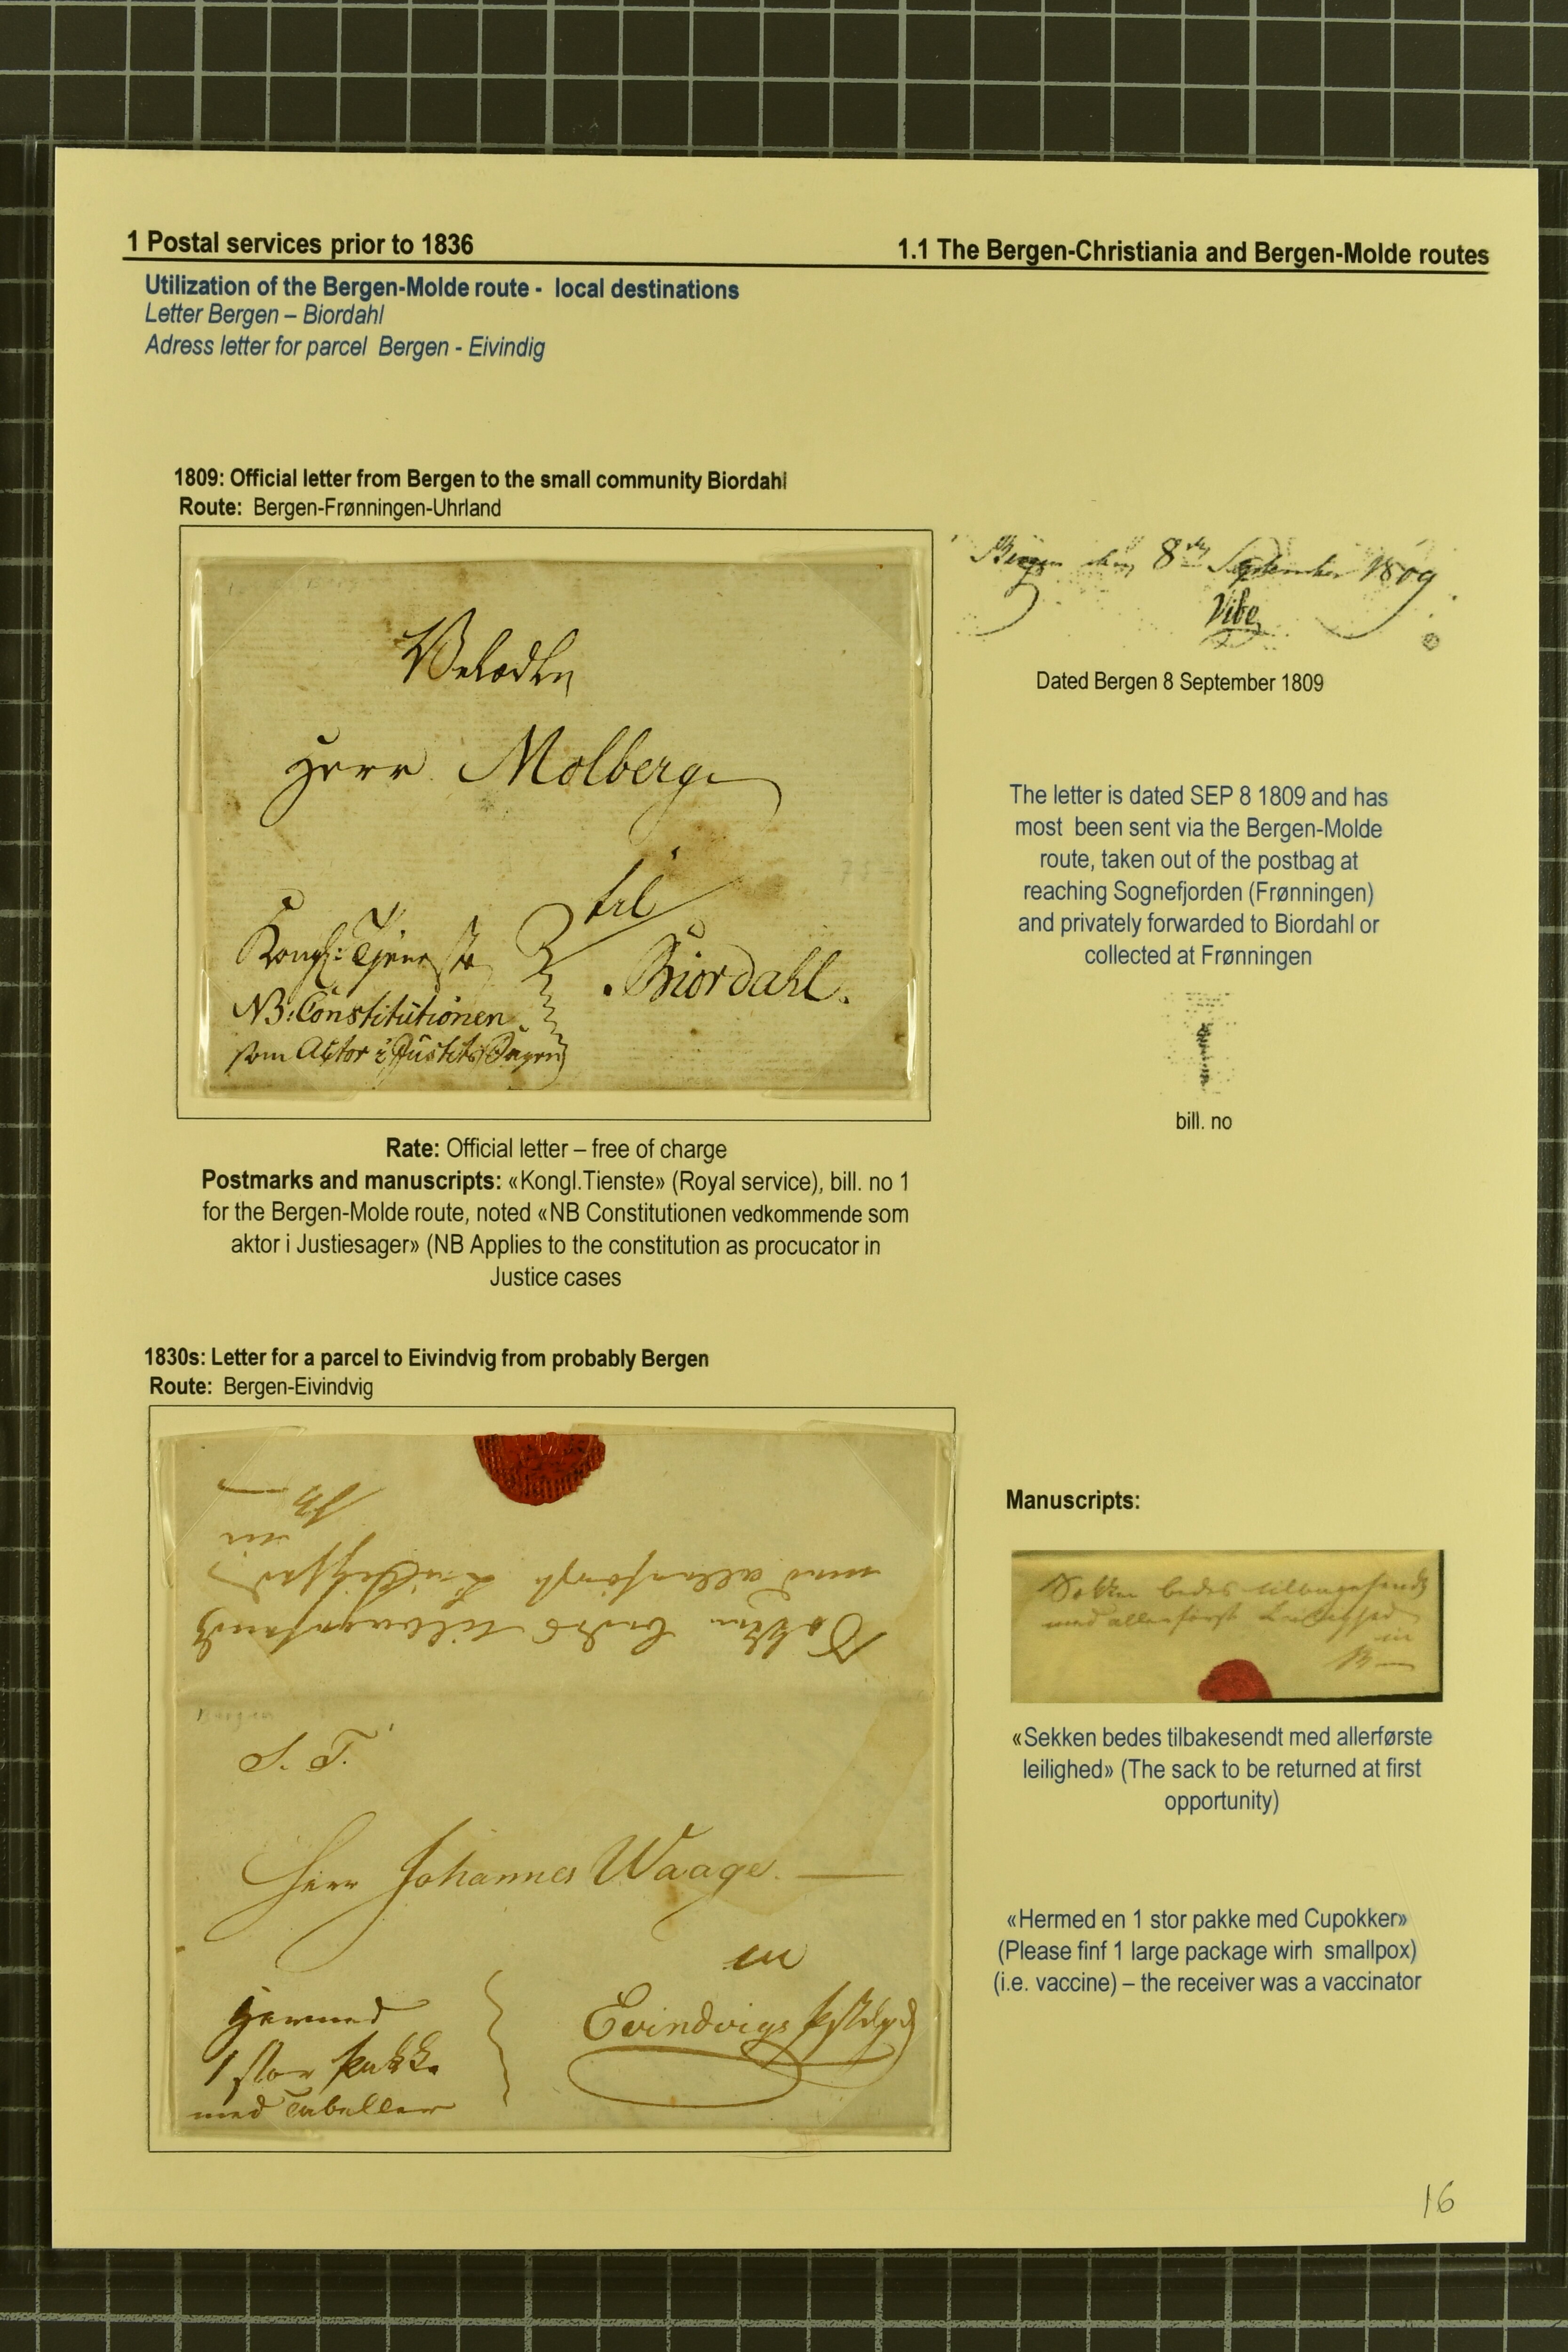 1 Postal services prior to 1836
1.1 The Bergen-Christiania and Bergen-Molde routes
Utilization of the Bergen-Molde route - local destinations
Letter Bergen – Biordahl
Adress letter for parcel Bergen - Eivindig
1809: Official letter from Bergen to the small community Biordahl
Route: Bergen-Frønningen-Uhrland
Herr Molberg
til
Biordahl.
Kongl: Tjeneste
NB: Constitutionen
som Actor i Justits Sagen
Bergen den 8de September 1809
Vibe
Dated Bergen 8 September 1809
The letter is dated SEP 8 1809 and has
most been sent via the Bergen-Molde
route, taken out of the postbag at
reaching Sognefjorden (Frønningen)
and privately forwarded to Biordahl or
collected at Frønningen
bill. no
Rate: Official letter – free of charge
Postmarks and manuscripts: «Kongl.Tienste» (Royal service), bill. no 1
for the Bergen-Molde route, noted «NB Constitutionen vedkommende som
aktor i Justiesager» (NB Applies to the constitution as procucator in
Justice cases
1830s: Letter for a parcel to Eivindvig from probably Bergen
Route: Bergen-Eivindvig
Sækken bedes tilbagesendt
med allerførst Leilighed
Bergen
S. T.
Herr Johannes Waage.
Evindvigs
Hermed
1 stor Pakke
med Tabeller
Manuscripts:
Sækken bedes tilbagesendt
med allerførst Leilighed
«Sekken bedes tilbakesendt med allerførste
leilighed» (The sack to be returned at first
opportunity)
«Hermed en 1 stor pakke med Cupokker»
(Please finf 1 large package wirh smallpox)
(i.e. vaccine) – the receiver was a vaccinator
16